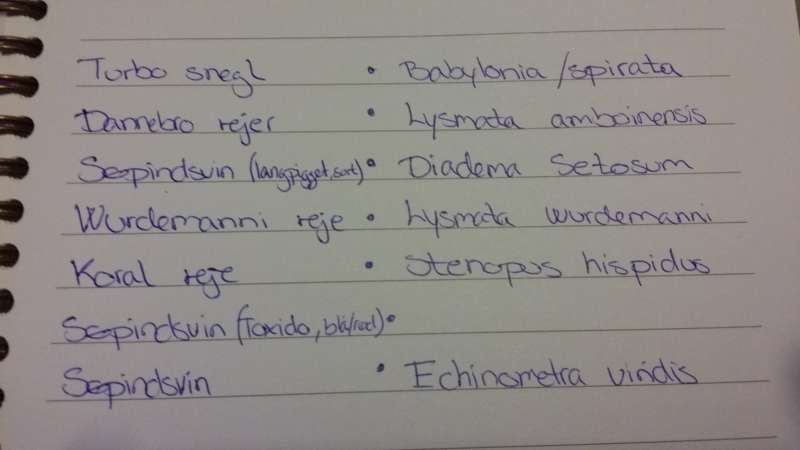 Turbo snegl • Babylonia /spirata
Dannebro rejer • Lysmata amboinensis
Søpindsvin (langpigget, sort) • Diadema Setosum
Wurdemanni reje • Lysmata wurdemanni
Koral reje • Stenopus hispidus
Søpindsvin (Toxido, blå/rød) •
Søpindsvin • Echinometra viridis